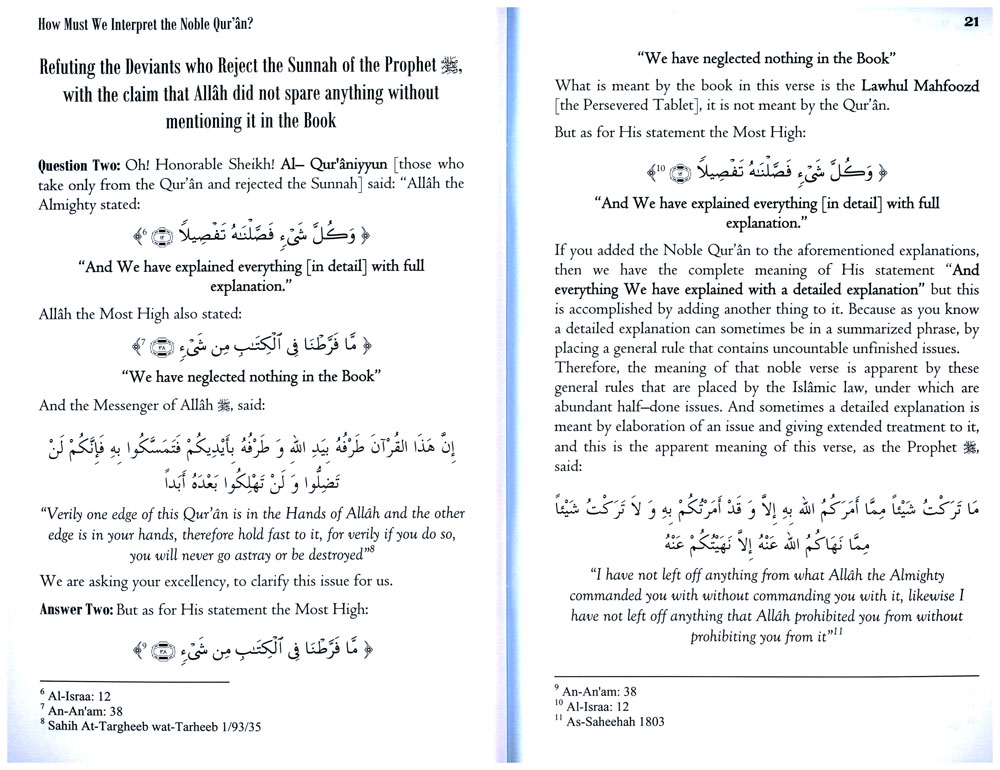 How Must We Interpret the Noble Qur'ân?
Refuting the Deviants who Reject the Sunnah of the Prophet ﷺ,
with the claim that Allâh did not spare anything without
mentioning it in the Book
Question Two: Oh! Honorable Sheikh! Al– Qur'âniyyun [those who
take only from the Qur'ân and rejected the Sunnah] said: "Allâh the
Almighty stated:
﴿ وَكُلَّ شَىْءٍ فَصَّلْنَٰهُ تَفْصِيلًا ۝١٢ ﴾6
"And We have explained everything [in detail] with full
explanation."
Allâh the Most High also stated:
﴿ مَّا فَرَّطْنَا فِى ٱلْكِتَٰبِ مِن شَىْءٍ ۝٣٨ ﴾7
"We have neglected nothing in the Book"
And the Messenger of Allâh ﷺ, said:
إِنَّ هَذَا القُرْآنَ طَرْفُهُ بِيَدِ اللهِ وَ طَرْفُهُ بِأَيْدِيكُمْ فَتَمَسَّكُوا بِهِ فَإِنَّكُمْ لَنْ
تَضِلُّوا وَ لَنْ تَهْلِكُوا بَعْدَهُ أَبَداً
"Verily one edge of this Qur'ân is in the Hands of Allâh and the other
edge is in your hands, therefore hold fast to it, for verily if you do so,
you will never go astray or be destroyed"8
We are asking your excellency, to clarify this issue for us.
Answer Two: But as for His statement the Most High:
﴿ مَّا فَرَّطْنَا فِى ٱلْكِتَٰبِ مِن شَىْءٍ ۝٣٨ ﴾9
6 Al-Israa: 12
7 An-An'am: 38
8 Sahih At-Targheeb wat-Tarheeb 1/93/35
21
"We have neglected nothing in the Book"
What is meant by the book in this verse is the Lawhul Mahfoozd
[the Persevered Tablet], it is not meant by the Qur'ân.
But as for His statement the Most High:
﴿ وَكُلَّ شَىْءٍ فَصَّلْنَٰهُ تَفْصِيلًا ۝١٢ ﴾10
"And We have explained everything [in detail] with full
explanation."
If you added the Noble Qur'ân to the aforementioned explanations,
then we have the complete meaning of His statement "And
everything We have explained with a detailed explanation" but this
is accomplished by adding another thing to it. Because as you know
a detailed explanation can sometimes be in a summarized phrase, by
placing a general rule that contains uncountable unfinished issues.
Therefore, the meaning of that noble verse is apparent by these
general rules that are placed by the Islâmic law, under which are
abundant half–done issues. And sometimes a detailed explanation is
meant by elaboration of an issue and giving extended treatment to it,
and this is the apparent meaning of this verse, as the Prophet ﷺ,
said:
مَا تَرَكْتُ شَيْئاً مِمَّا أَمَرَكُمُ اللهُ بِهِ إِلاَّ وَ قَدْ أَمَرْتُكُمْ بِهِ وَ لاَ تَرَكْتُ شَيْئاً
مِمَّا نَهَاكُمُ اللهُ عَنْهُ إِلاَّ نَهَيْتُكُمْ عَنْهُ
"I have not left off anything from what Allâh the Almighty
commanded you with without commanding you with it, likewise I
have not left off anything that Allâh prohibited you from without
prohibiting you from it"11
9 An-An'am: 38
10 Al-Israa: 12
11 As-Saheehah 1803